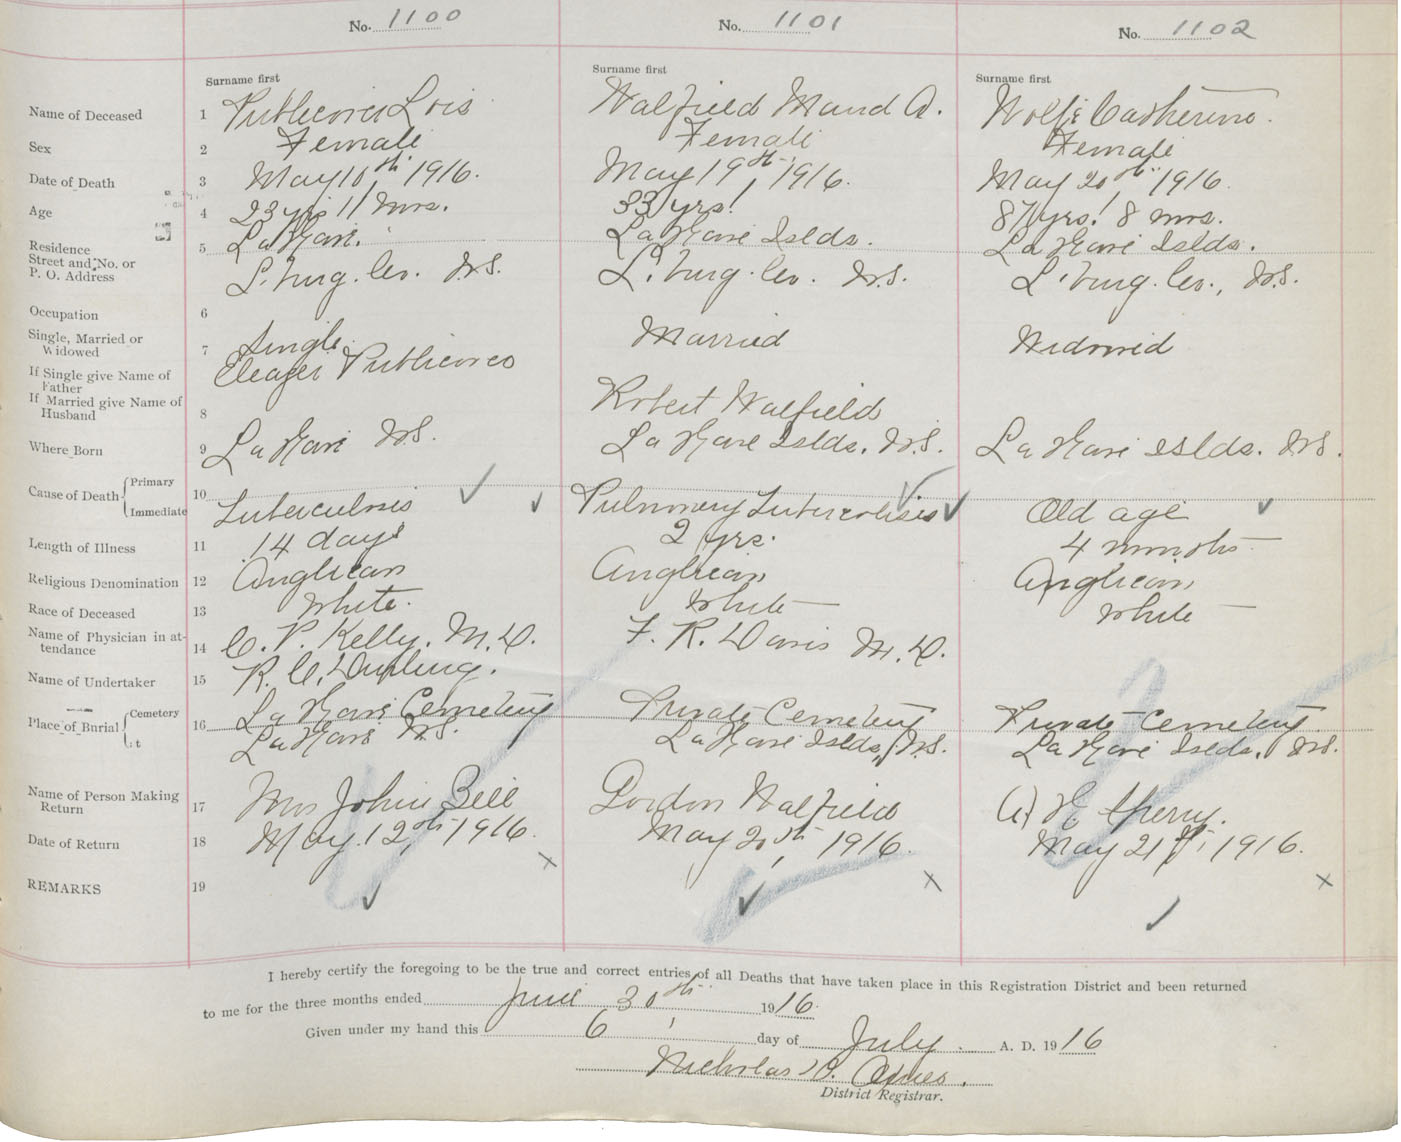 No. 1100 No. 1101 No. 1102
Surname first Surname first Surname first
Name of Deceased 1 Publicover Lois Walfield Maud A. Wolfe Catherine.
Sex 2 Female Female Female
Date of Death 3 May 10th 1916. May 19th 1916. May 20th 1916.
Age 4 23 yrs 11 mos. 33 yrs. 87 yrs. 8 mos.
Residence 5 La Have. La Have Islds. La Have Islds.
Street and No. or
P. O. Address L'burg. Co. N.S. L'burg. Co. N.S. L'burg. Co., N.S.
Occupation 6
Single, Married or
Widowed 7 Single. Married Widowed
If Single give Name of
Father Publicover
If Married give Name of
Husband 8 Robert Walfield
Where Born 9 La Have N.S. La Have Islds. N.S. La Have Islds. N.S.
Cause of Death Primary 10
Immediate Tuberculosis Pulmonary Tuberculosis Old age
Length of Illness 11 14 days 2 yrs. 4 months
Religious Denomination 12 Anglican Anglican Anglican
Race of Deceased 13 White. White White
Name of Physician in at-
tendance 14 C. P. Kelly. M.D. F. R. Davis M.D.
Name of Undertaker 15 R. C.
Place of Burial Cemetery 16 La Have Cemetery Private Cemetery Private Cemetery
La Have N.S. La Have Islds, N.S. La Have Islds. N.S.
Name of Person Making
Return 17 Mrs John Bell Gordon Walfield Sperry.
Date of Return 18 May 12th 1916. May 20th 1916. May 21st, 1916.
REMARKS 19
I hereby certify the foregoing to be the true and correct entries of all Deaths that have taken place in this Registration District and been returned
to me for the three months ended June 30th 1916.
Given under my hand this 6 day of July. A. D. 1916
Nicholas
District Registrar.